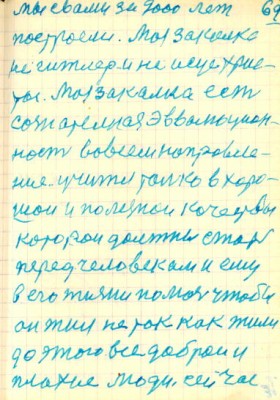 мы свами за 2000 лет 69
построели. Моя закалка
не гитлер и не исус хрис-
тос. Моя закалка есть
сознателная Эввалюцион-
ность во всем направле-
ние. учити толко в хоро-
шои и полезнои качествы
которои должны стать
перед человекам и ему
в его жизни помоч чтобы
он жил не так как жили
до этого все доброи и
плахие люди. сейчас